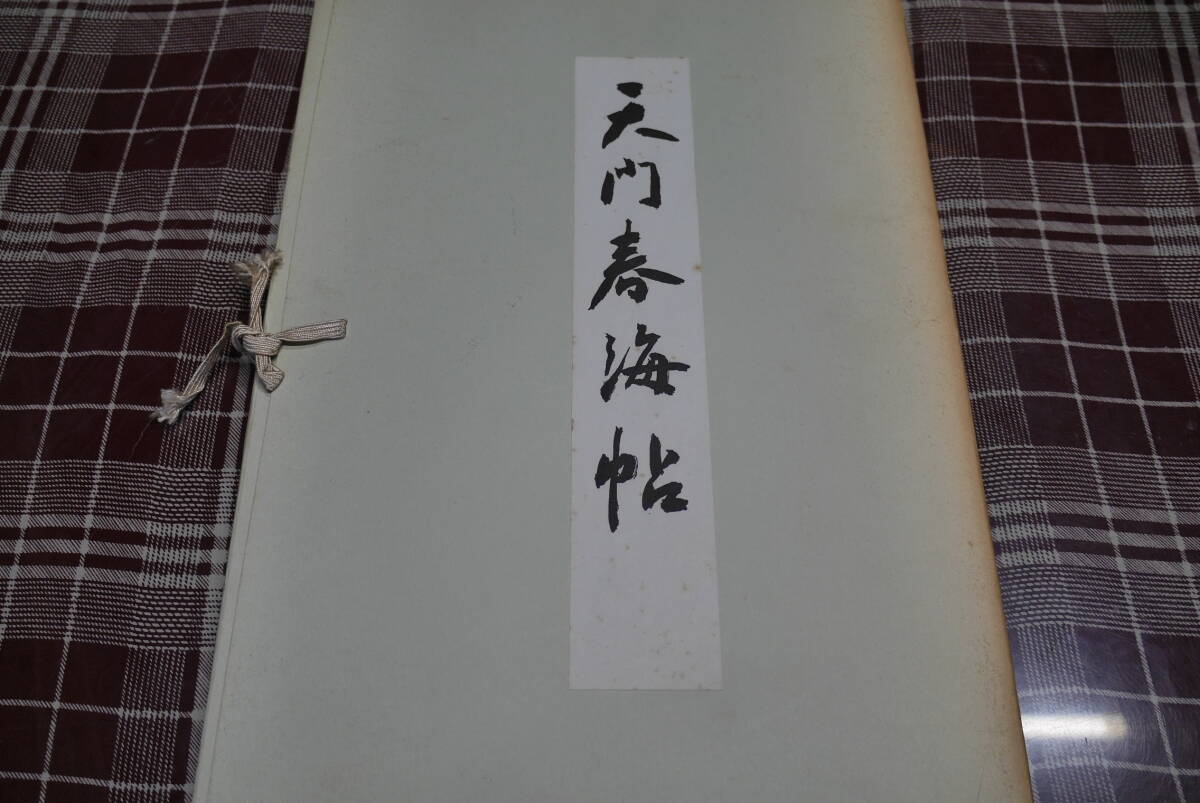 天門春海帖